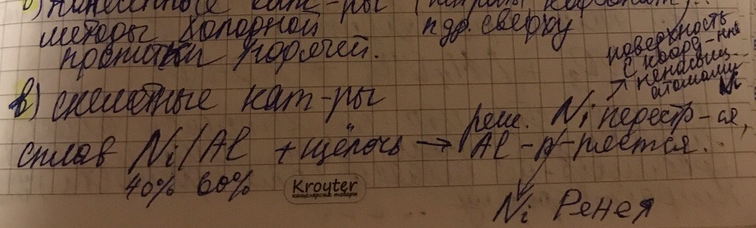 нанесённые кат-ры (нитраты, карбонат..
методы холодной и др. сверху
протики горячей.
поверхность
с коорд-нно
ненасыщ.
атомами
Ni
в) скелетные кат-ры
сплав Ni/Al + щёлочь → реш. Ni перестр-ся,
Al - р-ряется.
40% 60%
Kroyter
Ni Ренея